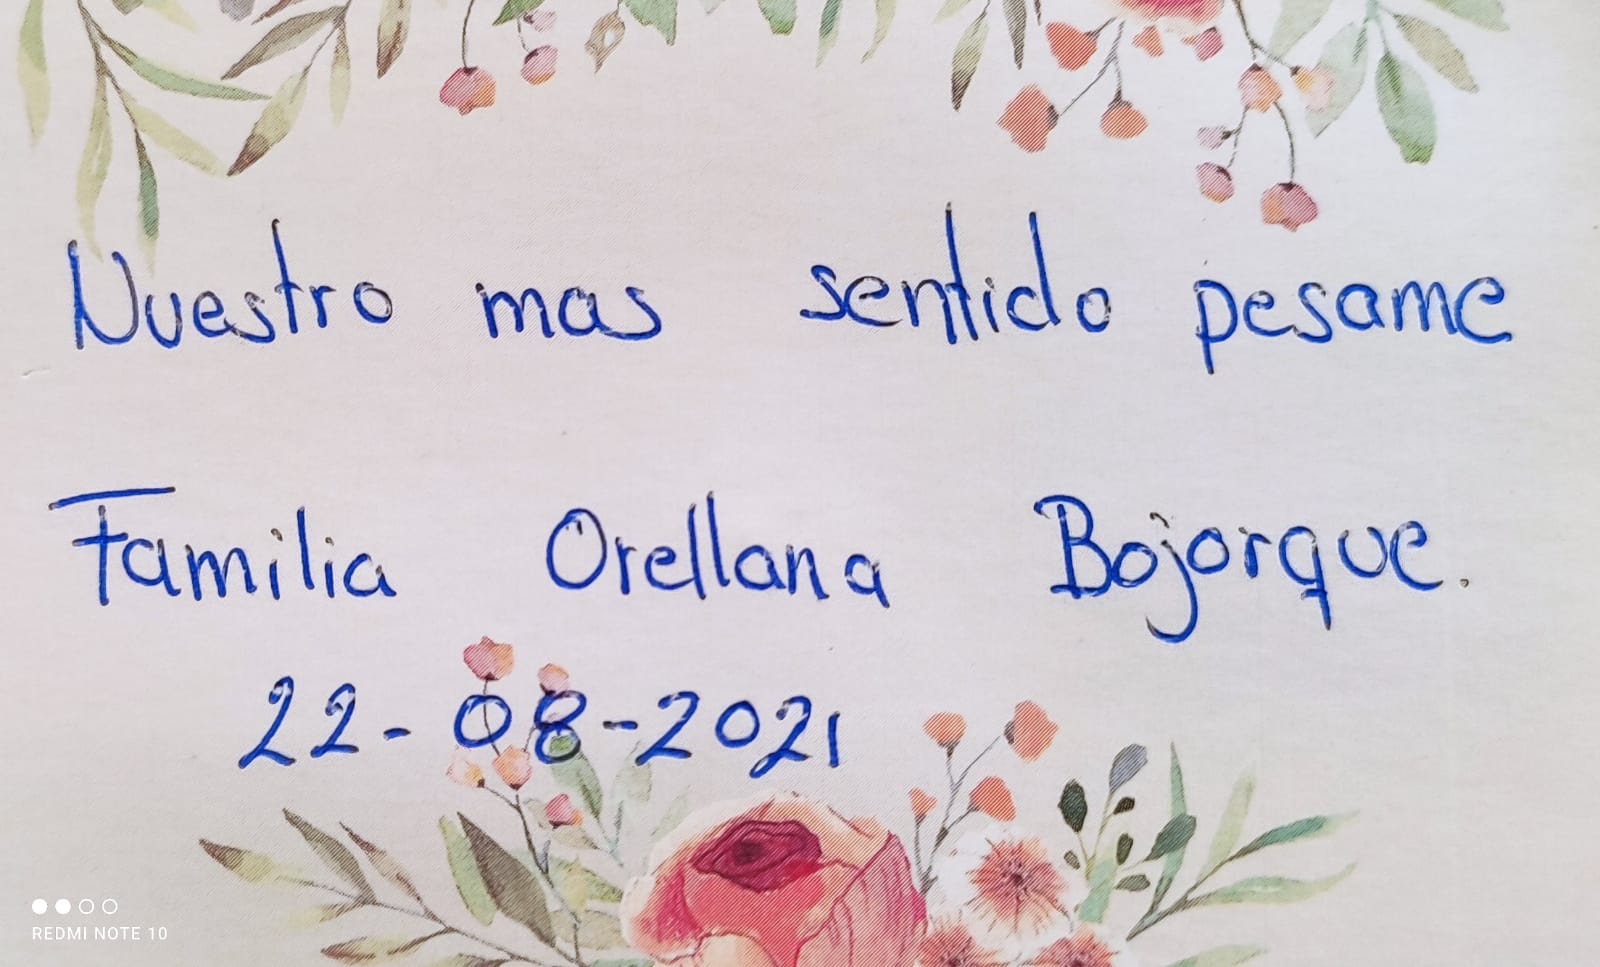 Nuestro mas sentido pesame
Familia Orellana Bojorque.
22-08-2021
REDMI NOTE 10